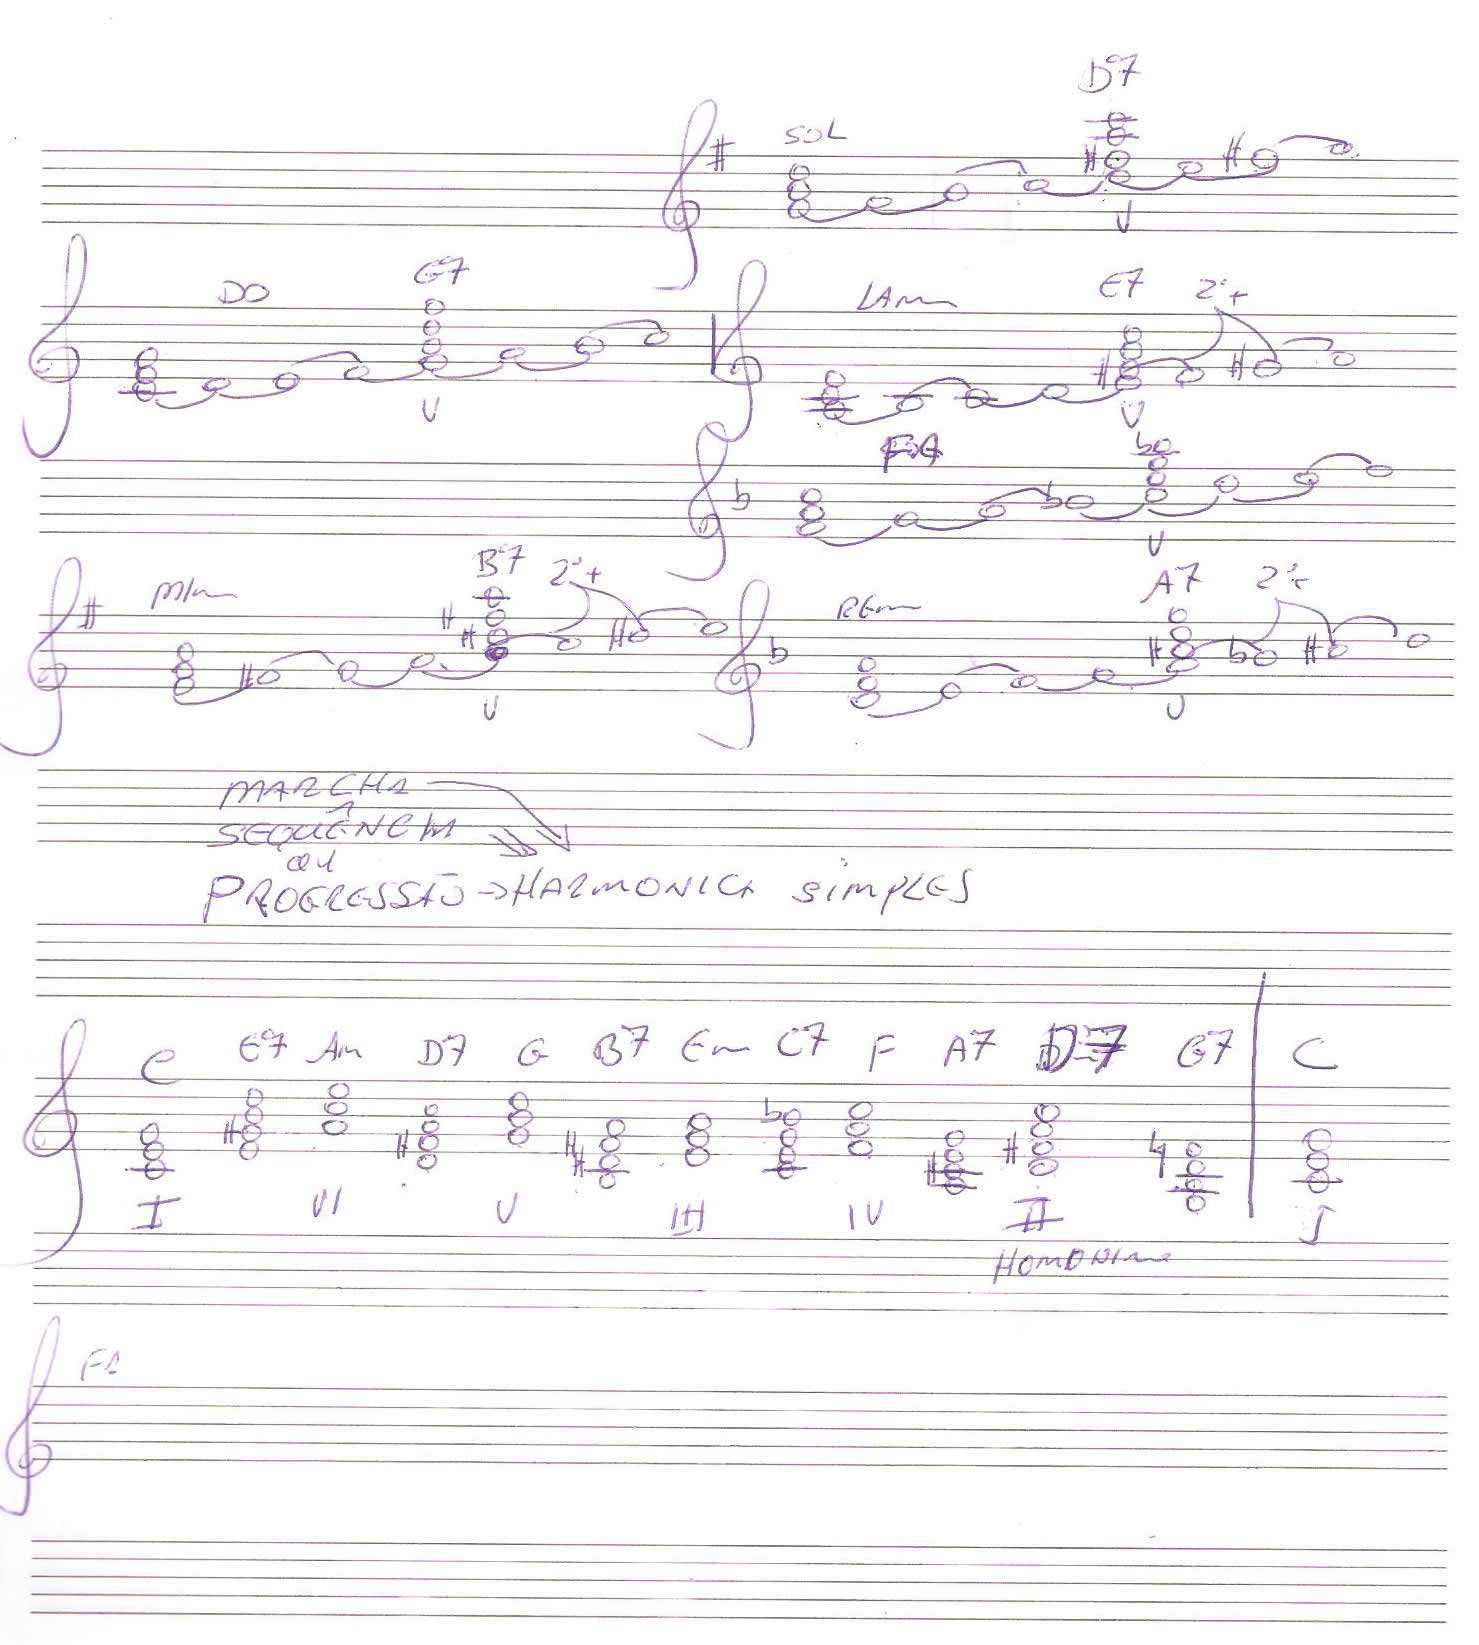 D7
SOL
V
DO G7
V
LAm E7 2ª+
V
FA
V
MIm B7 2ª+
V
REm A7 2ª+
V
MARCHA
SEQUÊNCIA
ou
PROGRESSÃO → HARMONICA SIMPLES
C E7 Am D7 G B7 Em C7 F A7 D7 G7 C
I VI V III IV II I
HOMONIMO
FA